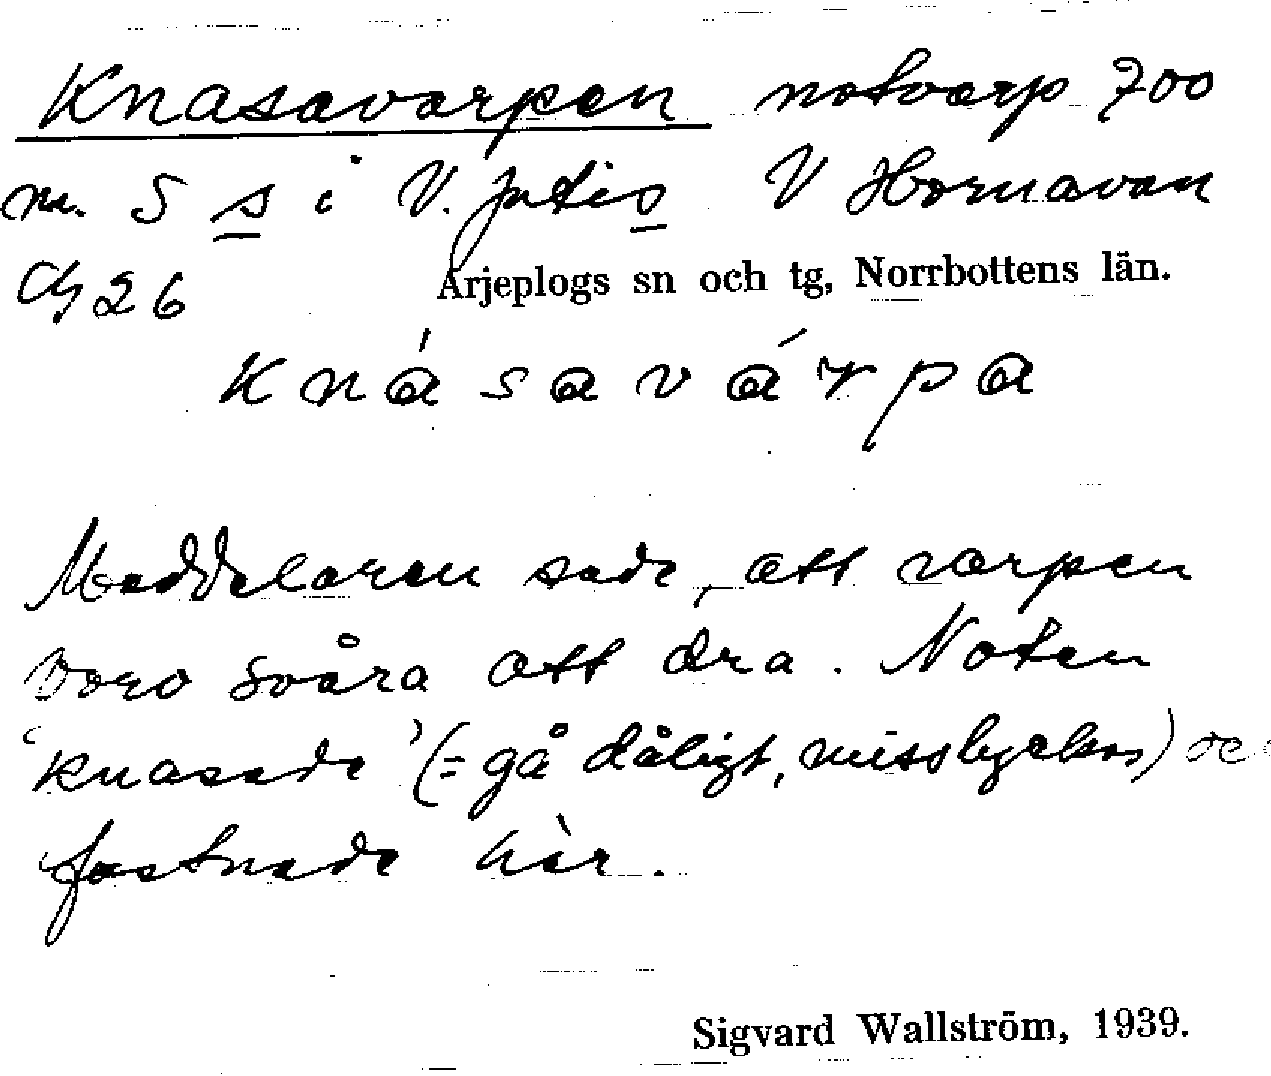 Knasavarpen notvarp 700
m. S s i V. Jutis V Hornavan
26 Arjeplogs sn och tg, Norrbottens län.
Knásavárpa
Meddelaren sade, att varpen
voro svåra att dra. Noten
'knasade' (= gå dåligt, misslyckas) oc
fastnade här.
Sigvard Wallström, 1939.